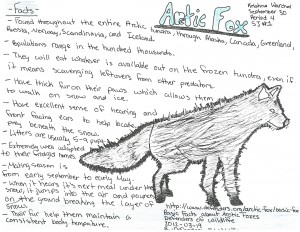 Arctic Fox
Krishna Variend
September 30
Period 4
S3#1
- Facts -
- Found throughout the entire Arctic tundra, through Alaska, Canada, Greenland,
Russia, Norway, Scandinavia, and Iceland.
- Populations range in the hundred thousands.
- They will eat whatever is available out on the frozen tundra, even if
it means scavenging leftovers from other predators.
- Have thick fur on their paws which allows them
to walk on snow and ice.
- Have excellent sense of hearing and
front facing ears to help locate
prey beneath the snow.
- Litters are usually 5-9 pups
- Extremely well adapted
to their frigid homes
- Mating season is
from early september to early May.
- When it hears it's next meal under the
snow, it jumps into the air and pounces
on the ground breaking the layer of
snow.
- Their fur help them maintain a
consistent body temperature.
Basic facts about Arctic Foxes
Defenders of Wildlife
2012-03-19